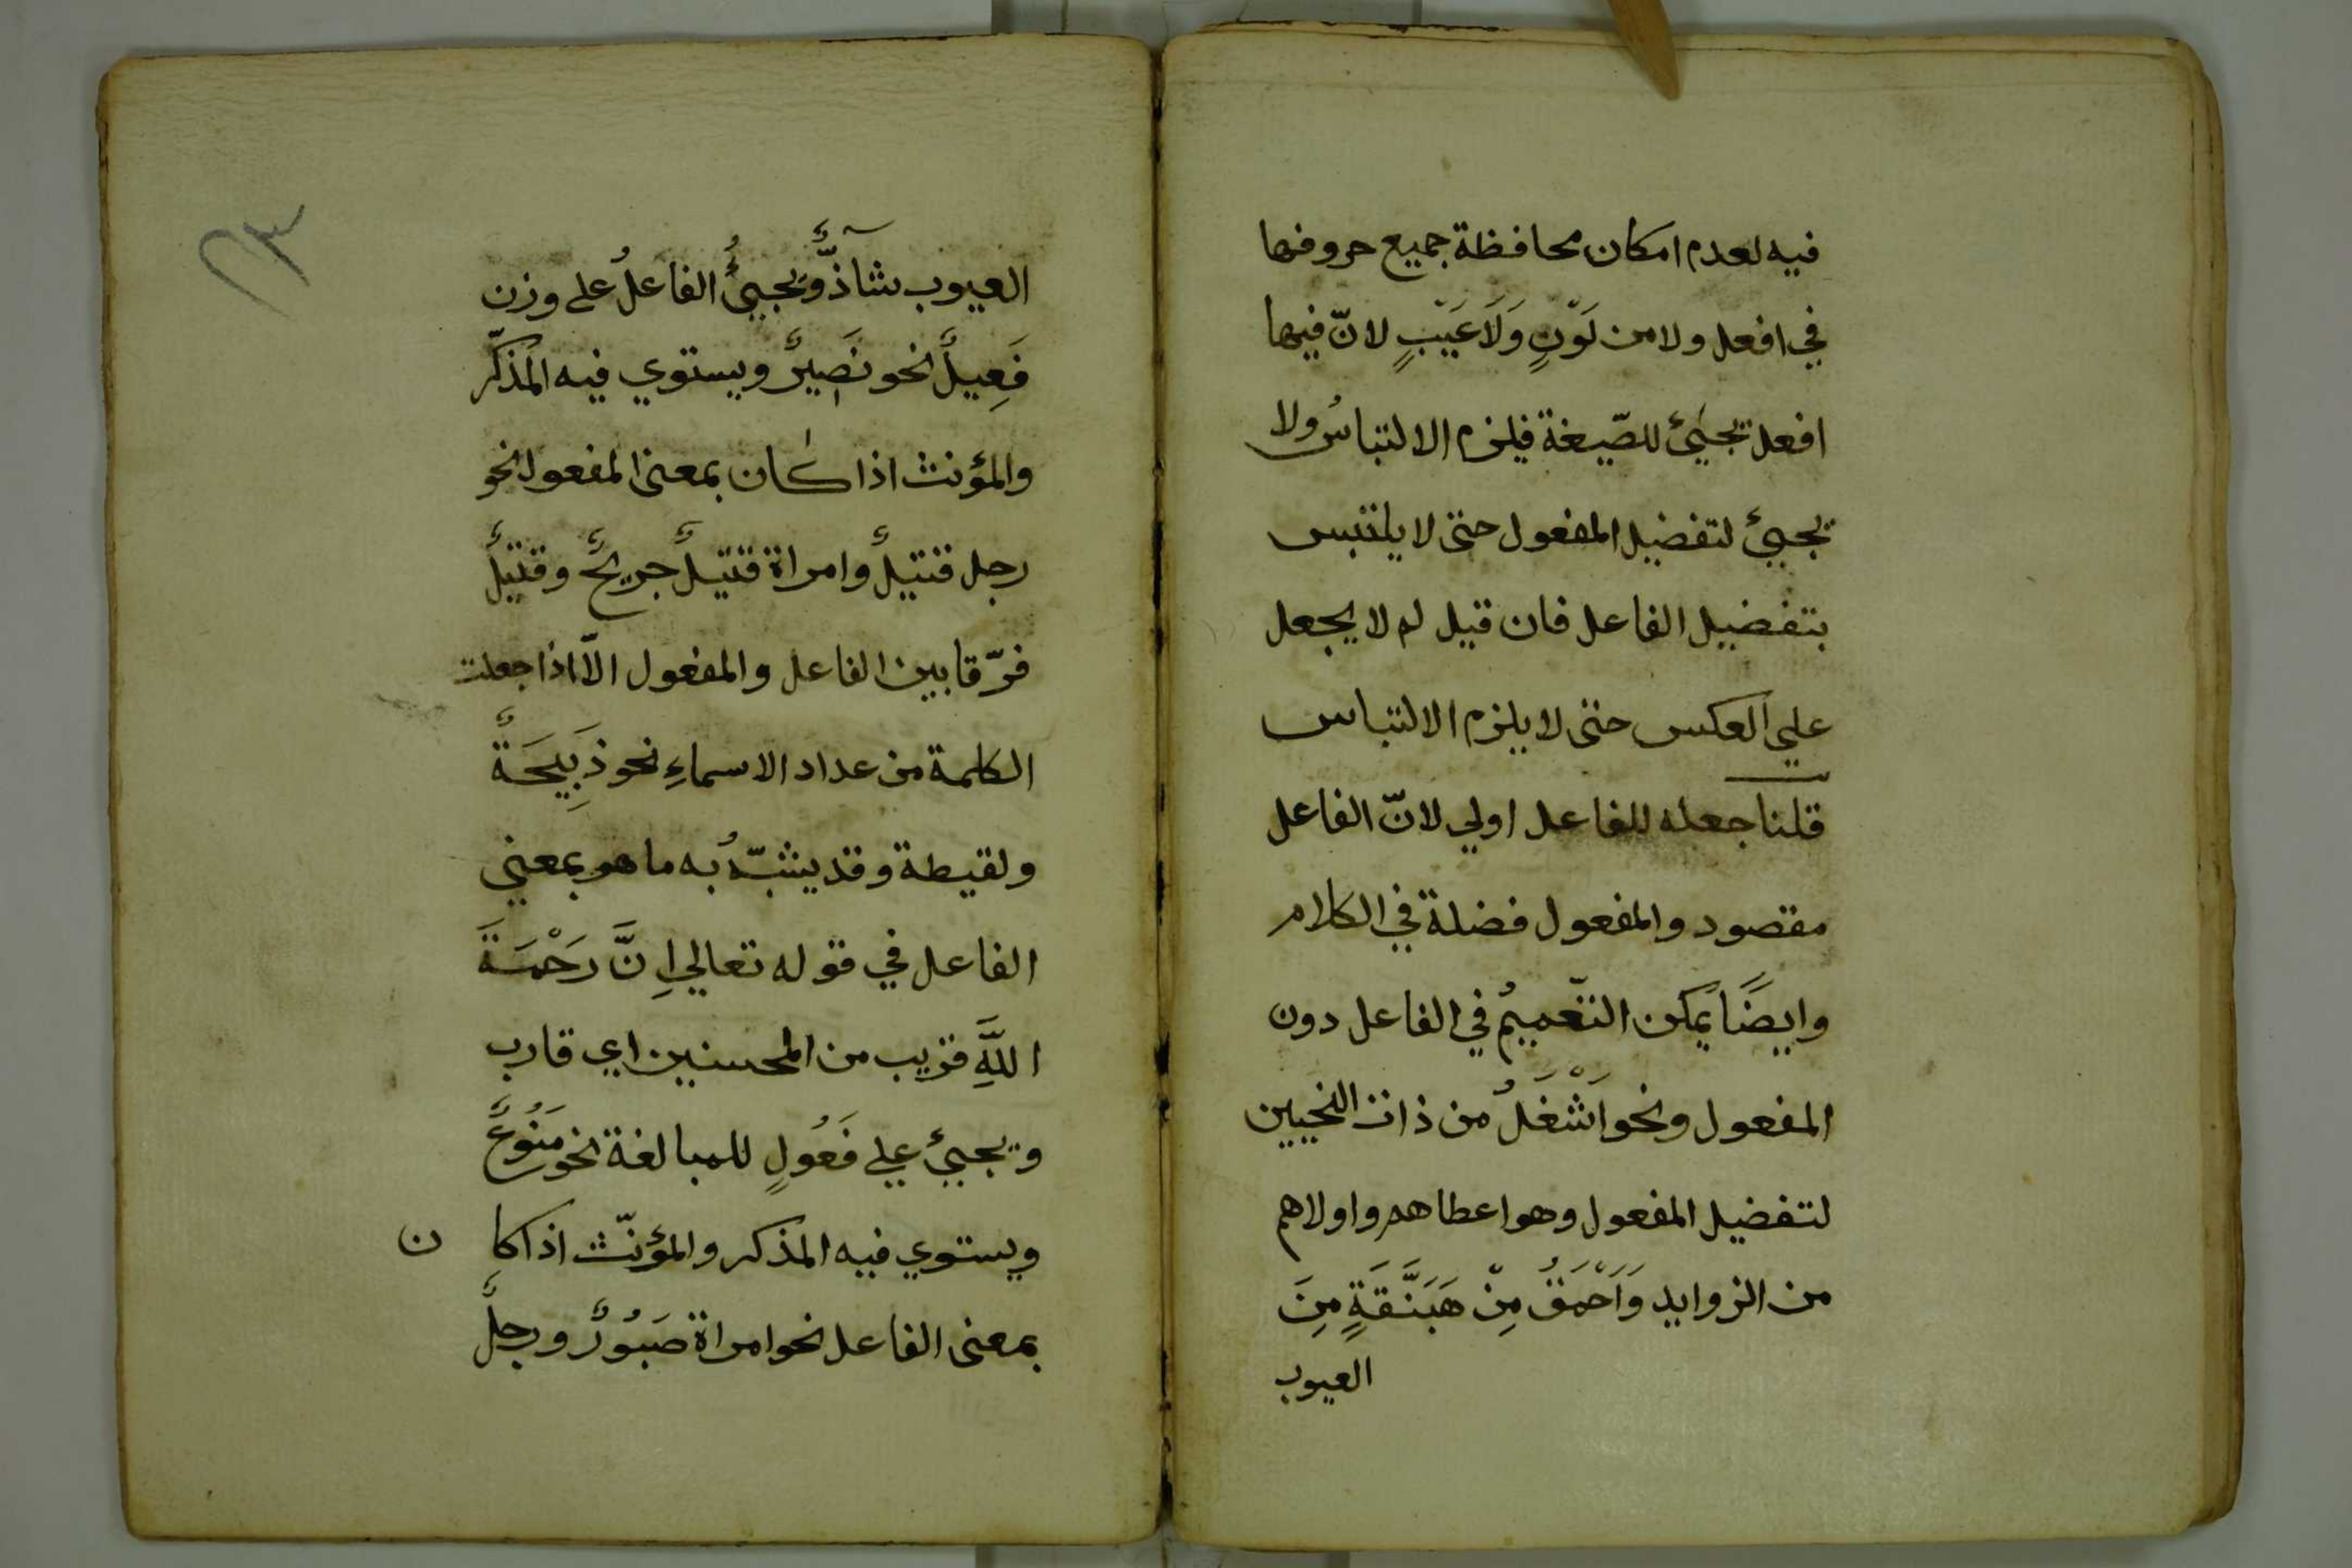 فيه لعدم امكان محافظة جميع حروفها
في افعل ولا من لَوْنٍ وَلَا عَيْبٍ لانّ فيها
افعل يجيئ للصّيغة فيلزم الالتباسُ ولا
يجيئ لتفضيل المفعول حتى لا يلتبس
بتفضيل الفاعل فان قيل لم لا يجعل
علي العكس حتى لا يلزم الالتباس
قلنا جعله للفاعل اولي لانّ الفاعل
مقصود والمفعول فضلة في الكلام
وايضًا يُمكن التّعميمُ في الفاعل دون
المفعول ونحو اَشْغَلُ من ذات النحيين
لتفضيل المفعول وهو اعطاهم واولاهم
من الزوايد وَاَحْمَقُ مِنْ هَبَنَّقَةٍ مِنَ
العيوب
٢٣
العيوب شآذٌّ وَيجيئُ الفاعلُ على وزن
فَعِيلٌ نحو نَصِيرٌ ويستوي فيه المُذكّر
والمؤنث اذا كان بمعنى المفعول نحو
رجل قتيلٌ وامراة قتيلٌ جريحٌ وقتيلٌ
فرّقا بين الفاعل والمفعول الّا اذا جعلت
الكلمة من عداد الاسماءِ نحو ذَبِيحَةٌ
ولقيطة وقد يشبّهُ به ما هو بمعني
الفاعل في قوله تعالي اِنَّ رَحْمَةَ
اللَّهِ قريب من المحسنين اي قارب
ويجيئ علي فَعُولٍ للمبالغة نحو مَنُوعٌ
ويستوي فيه المذكر والمؤنّث اذا كا ن
بمعنى الفاعل نحو امراة صَبُورٌ ورجلٌ